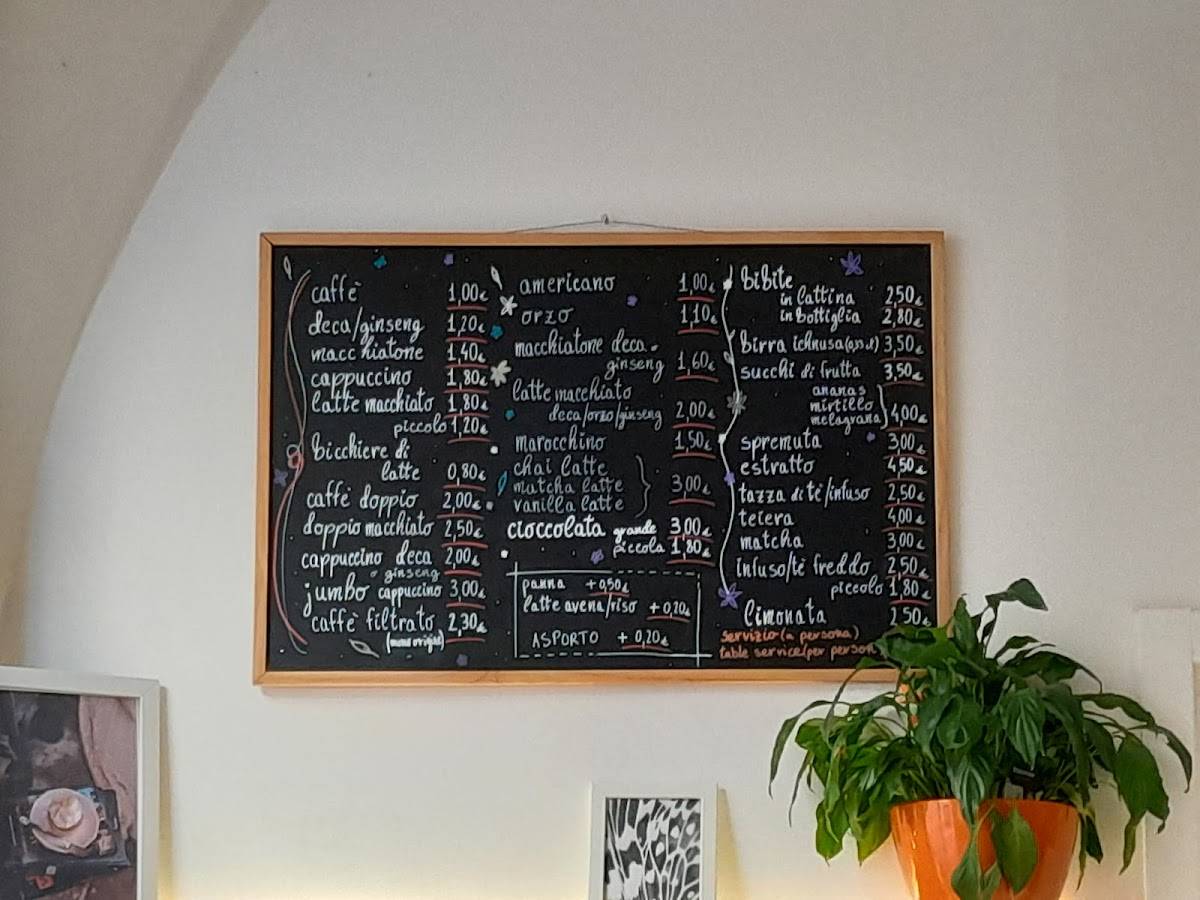 caffè 1,00€
deca/ginseng 1,20€
macchiatone 1,40€
cappuccino 1,80€
latte macchiato 1,80€
piccolo 1,20€
bicchiere di
latte 0,80€
caffè doppio 2,00€
doppio macchiato 2,50€
cappuccino deca 2,00€
o ginseng
jumbo cappuccino 3,00€
caffè filtrato 2,30€
americano 1,00€
orzo 1,10€
macchiatone deca
ginseng 1,60€
latte macchiato
deca/orzo/ginseng 2,00€
marocchino 1,50€
chai latte
matcha latte 3,00€
vanilla latte
cioccolata grande 3,00€
piccola 1,80€
panna +0,50€
latte avena/riso +0,20€
ASPORTO +0,20€
bibite
in lattina 2,50€
in bottiglia 2,80€
birra ichnusa 3,50€
succhi di frutta 3,50€
ananas
mirtillo 4,00€
melagrana
spremuta 3,00€
estratto 4,50€
tazza di tè/infuso 2,50€
teiera 4,00€
matcha 3,00€
infuso/tè freddo 2,50€
piccolo 1,80€
limonata 2,50€
servizio (a persona)
table service (per person